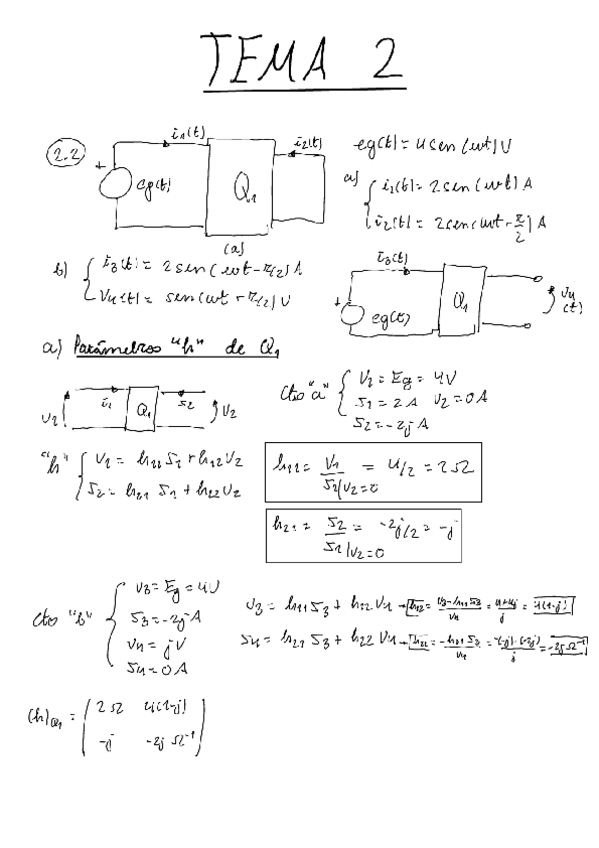 TEMA 2
2.2
i1(t)
i2(t)
+
eg(t)
Q1
(a)
eg(t) = 4 sen(wt) V
a) { i1(t) = 2 sen(wt) A
i2(t) = 2 sen(wt - π/2) A
b) { i3(t) = 2 sen(wt - π/2) A
V4(t) = sen(wt + π/2) V
i3(t)
+
eg(t)
Q1
V4(t)
a) Parámetros "h" de Q1
V1 i1 Q1 I2 V2
Cto "a" { V1 = Eg = 4V
I1 = 2A V2 = 0A
I2 = -2j A
"h" { V1 = h11 I1 + h12 V2
I2 = h21 I1 + h22 V2
h11 = V1/I1 |V2=0 = 4/2 = 2Ω
h21 = I2/I1 |V2=0 = -2j/2 = -j
Cto "b" { V3 = Eg = 4V
I3 = -2j A
V4 = j V
I4 = 0 A
V3 = h11 I3 + h12 V4 → h12 = V3 - h11 I3 / V4 = 4+4j / j = 4(1-j)
I4 = h21 I3 + h22 V4 → h22 = -h21 I3 / V4 = -(-j)·(-2j) / j = -2j Ω⁻¹
(h)Q1 = ( 2Ω 4(1-j)
-j -2j Ω⁻¹ )